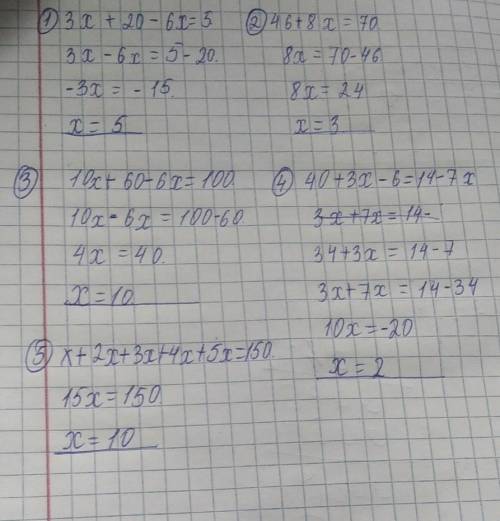 ① 3x + 20 - 6x = 5
3x - 6x = 5 - 20.
-3x = - 15.
x = 5
② 46 + 8x = 70.
8x = 70 - 46
8x = 24
x = 3
③ 10x + 60 - 6x = 100.
10x - 6x = 100 - 60.
4x = 40.
x = 10.
④ 40 + 3x - 6 = 14 - 7x
3x + 7x = 14 -
34 + 3x = 14 - 7
3x + 7x = 14 - 34
10x = -20
x = 2
⑤ x + 2x + 3x + 4x + 5x = 150.
15x = 150.
x = 10